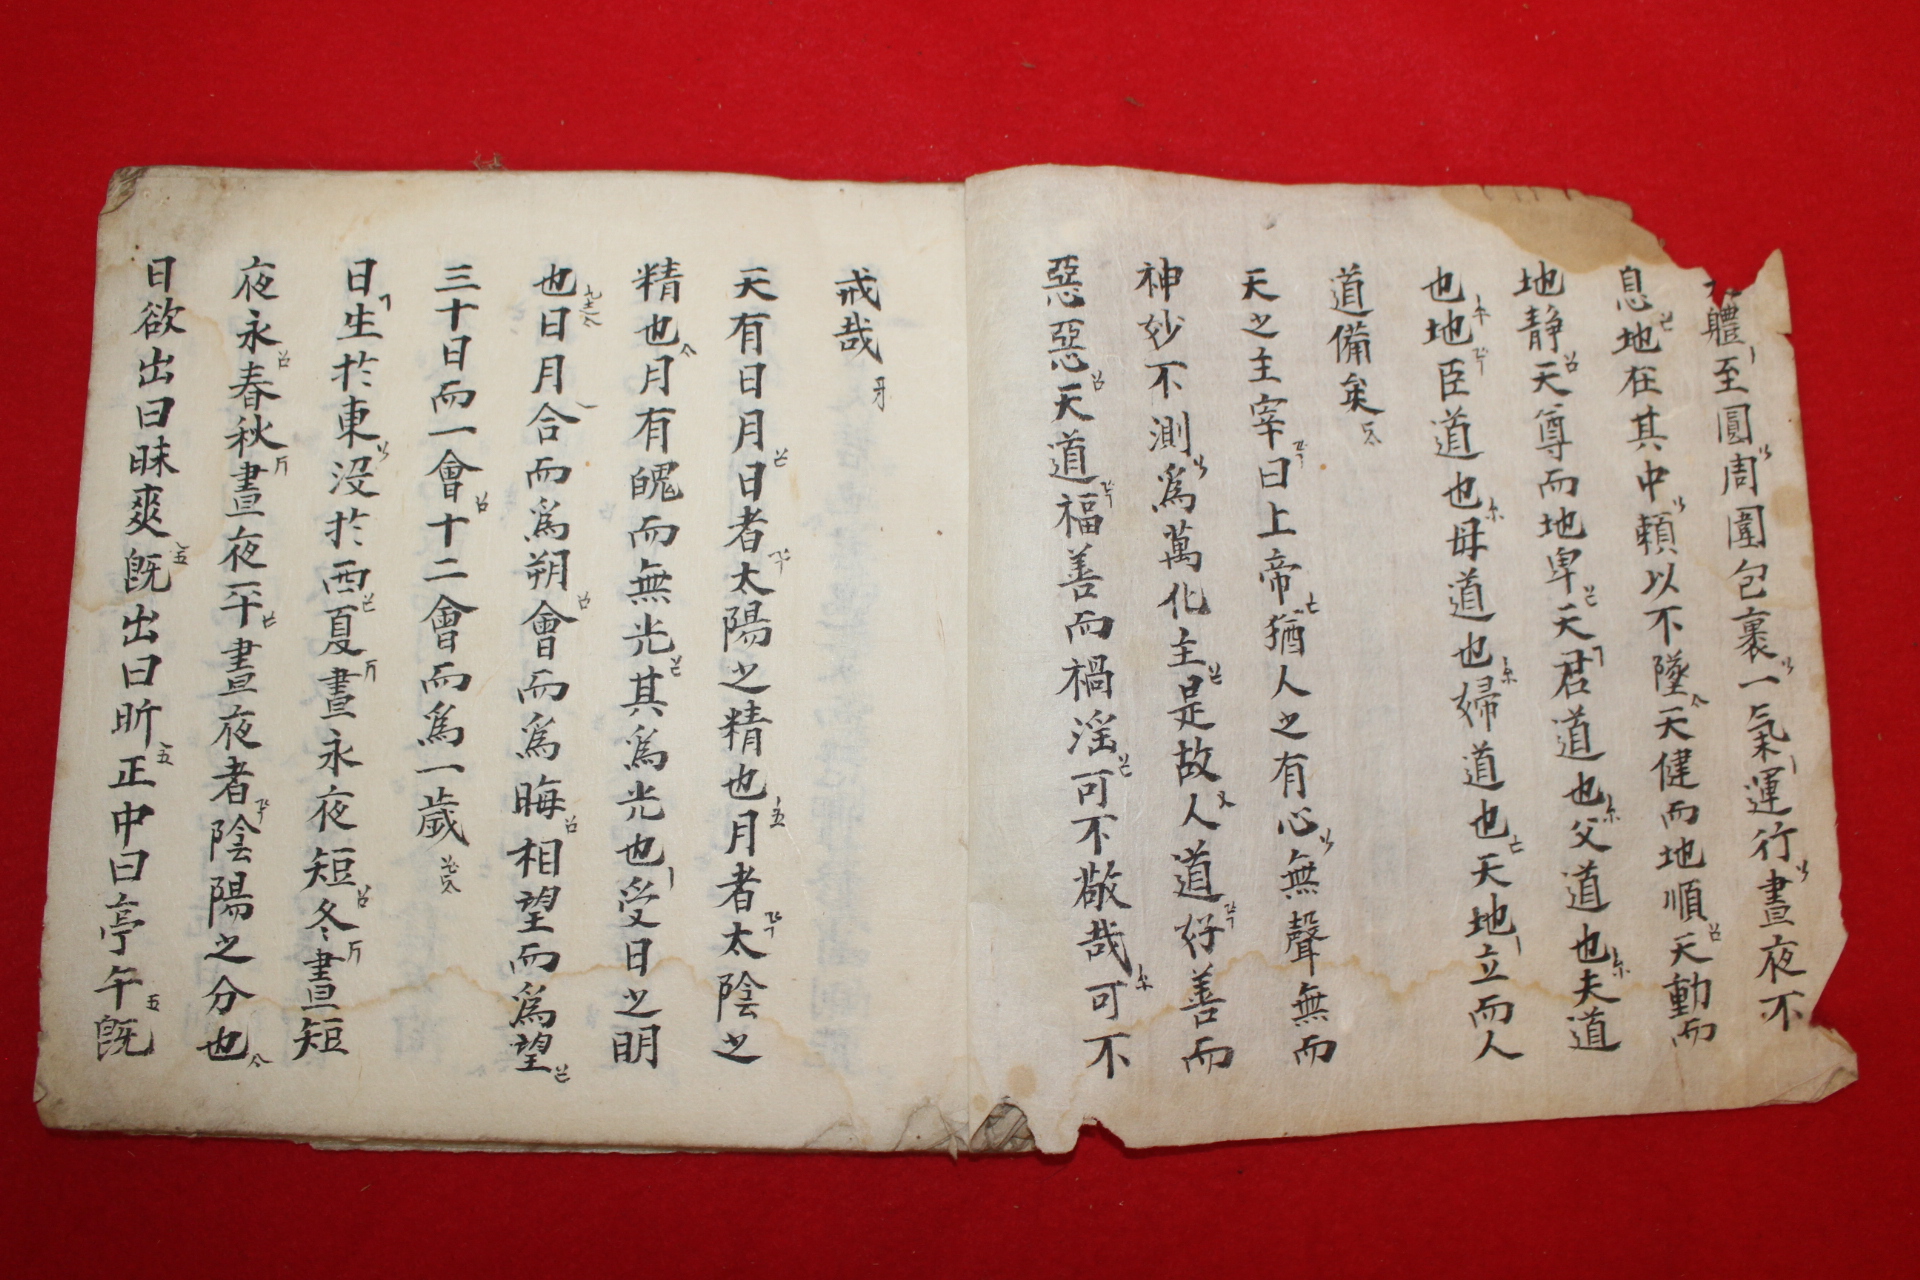 體至圓周圍包裹一氣運行晝夜不
息地在其中賴以不墜天健而地順天動而
地静天尊而地卑天君道也父道也夫道
也地臣道也母道也婦道也天地立而人
道備矣
天之主宰曰上帝猶人之有心無聲無而
神妙不測爲萬化主是故人道好善而
惡惡天道福善而禍淫可不敬哉可不
戒哉
天有日月日者太陽之精也月者太陰之
精也月有魄而無光其爲光也受日之明
也日月合而爲朔會而爲晦相望而爲望
三十日而一會十二會而爲一歲
日生於東没於西夏晝永夜短冬晝短
夜永春秋晝夜平晝夜者陰陽之分也
日欲出曰昧爽既出曰昕正中曰亭午既